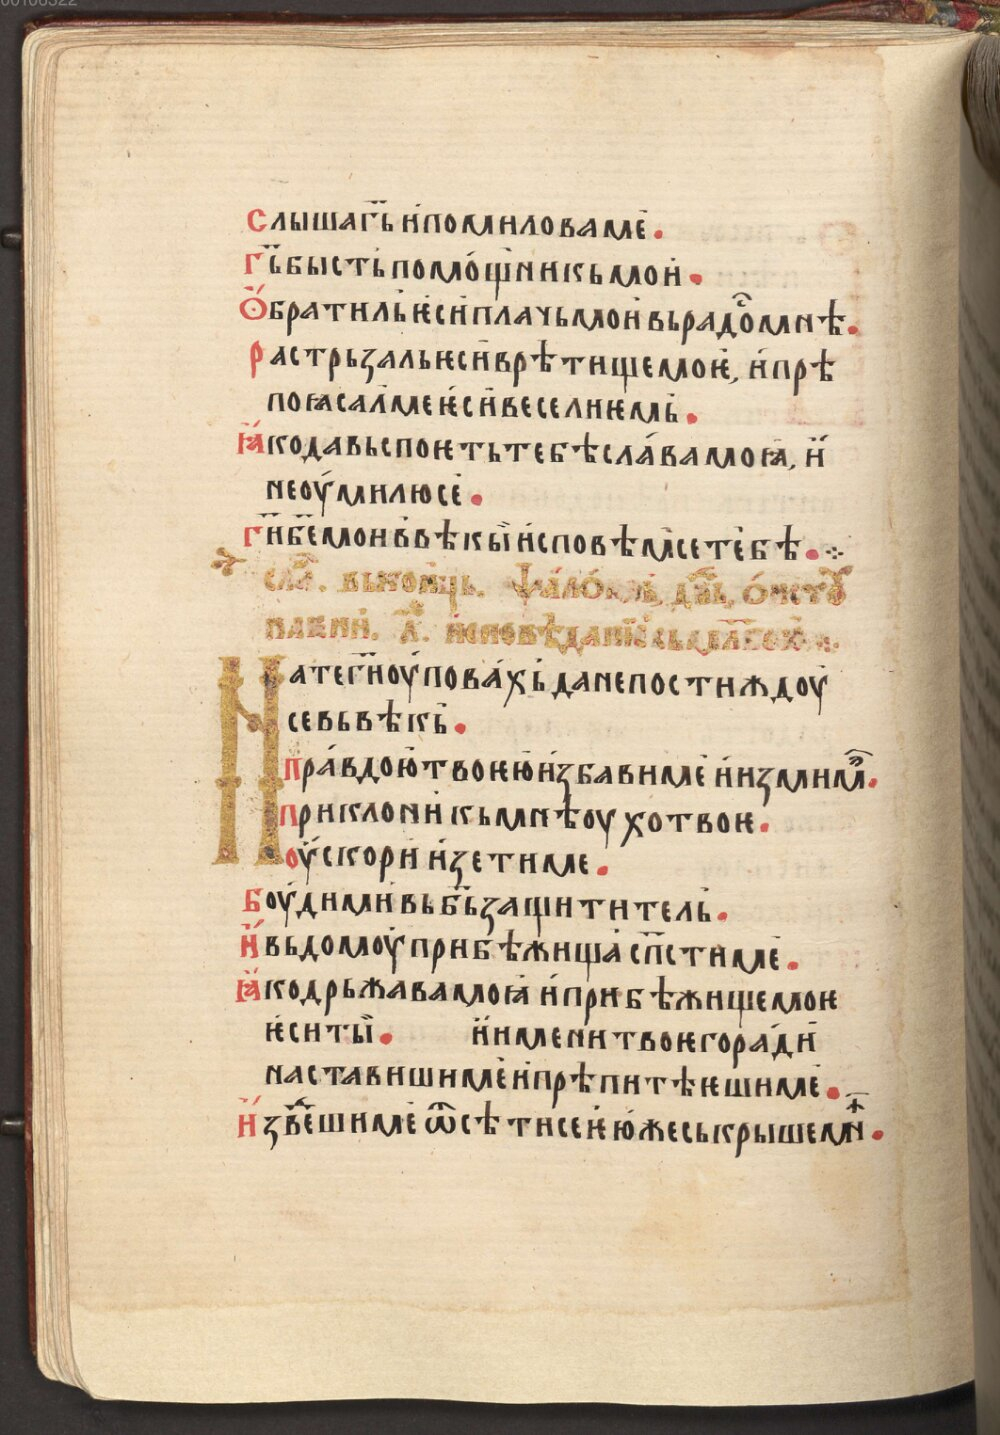 00106322
слышагь҃ и҆помиловаме҆.
гь҃бысть҆помо́щникьмои҆.
Ѻ҆братиль҆ѥси҆плачьмои҆вьрадⷪ҇мнѣ.
растрьзальѥси҆врѣтищемоѥ҆, и҆прѣ
поꙗсал҆меѥ҆си҆веселиѥмь҆.
ꙗ҆кодавьспоѥтьтебѣсла́вамоꙗ҆, и҆
неоу҆милюсе҆.
ги҃бе҃мои҆в҆вѣкы҆и҆споведѣмсете҆бѣ.
сла҃. вьконць. Ѱа́ло́мь, дв҃ь, о́исту
плѥнии. л҃. и҆споведѣданиѥ
Натеги҃оу҆пова́хь҆данепостиждоу҆
севьвѣкь҆.
пра́вдою҆твоѥю҆и҆збавиме҆ и҆изми҆ме.
приклони҆кьмнѣоу҆хотвоѥ.
оу҆скори҆ и҆зетиме.
Боу҆дими҆вьбь҃защититель҆.
и҆вьдомоу҆прибѣжища҆ сп҃стиме҆.
ꙗ҆кодрьжавамоꙗ҆ и҆прибѣжищемоѥ
ѥ҆ситы҆. и҆имени҆твоѥгора́ди҆
наставишиме҆и҆прѣпитѣѥшиме҆.
и҆зве҃шиме҆ ѿсѣтисеи҆ю҆жесьскрышемⷩ҇и.